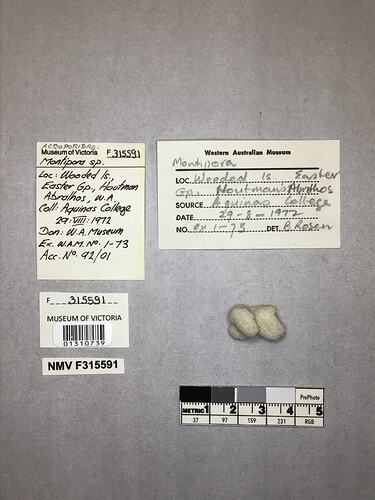 ACROPORIDAE
Museum of Victoria F 315591
Montipora sp.
Loc: Wooded Is,
Easter Gp., Houtman
Abrolhos, W.A.
Coll: Aquinas College
29:VIII:1972
Don: W.A. Museum
Ex. W.A.M. No. 1-73
Acc. No. 92/01
Western Australian Museum
Montipora
LOC. Wooded Is Easter
Gp, Houtmans Abrolhos
SOURCE Aquinas College
DATE 29-8-1972
NO. ex 1-73 DET. B. Rosen
F 315591
MUSEUM OF VICTORIA
01310739
NMV F315591
ProPhoto
METRIC 1 2 3 4 5
37 97 159 231 RGB